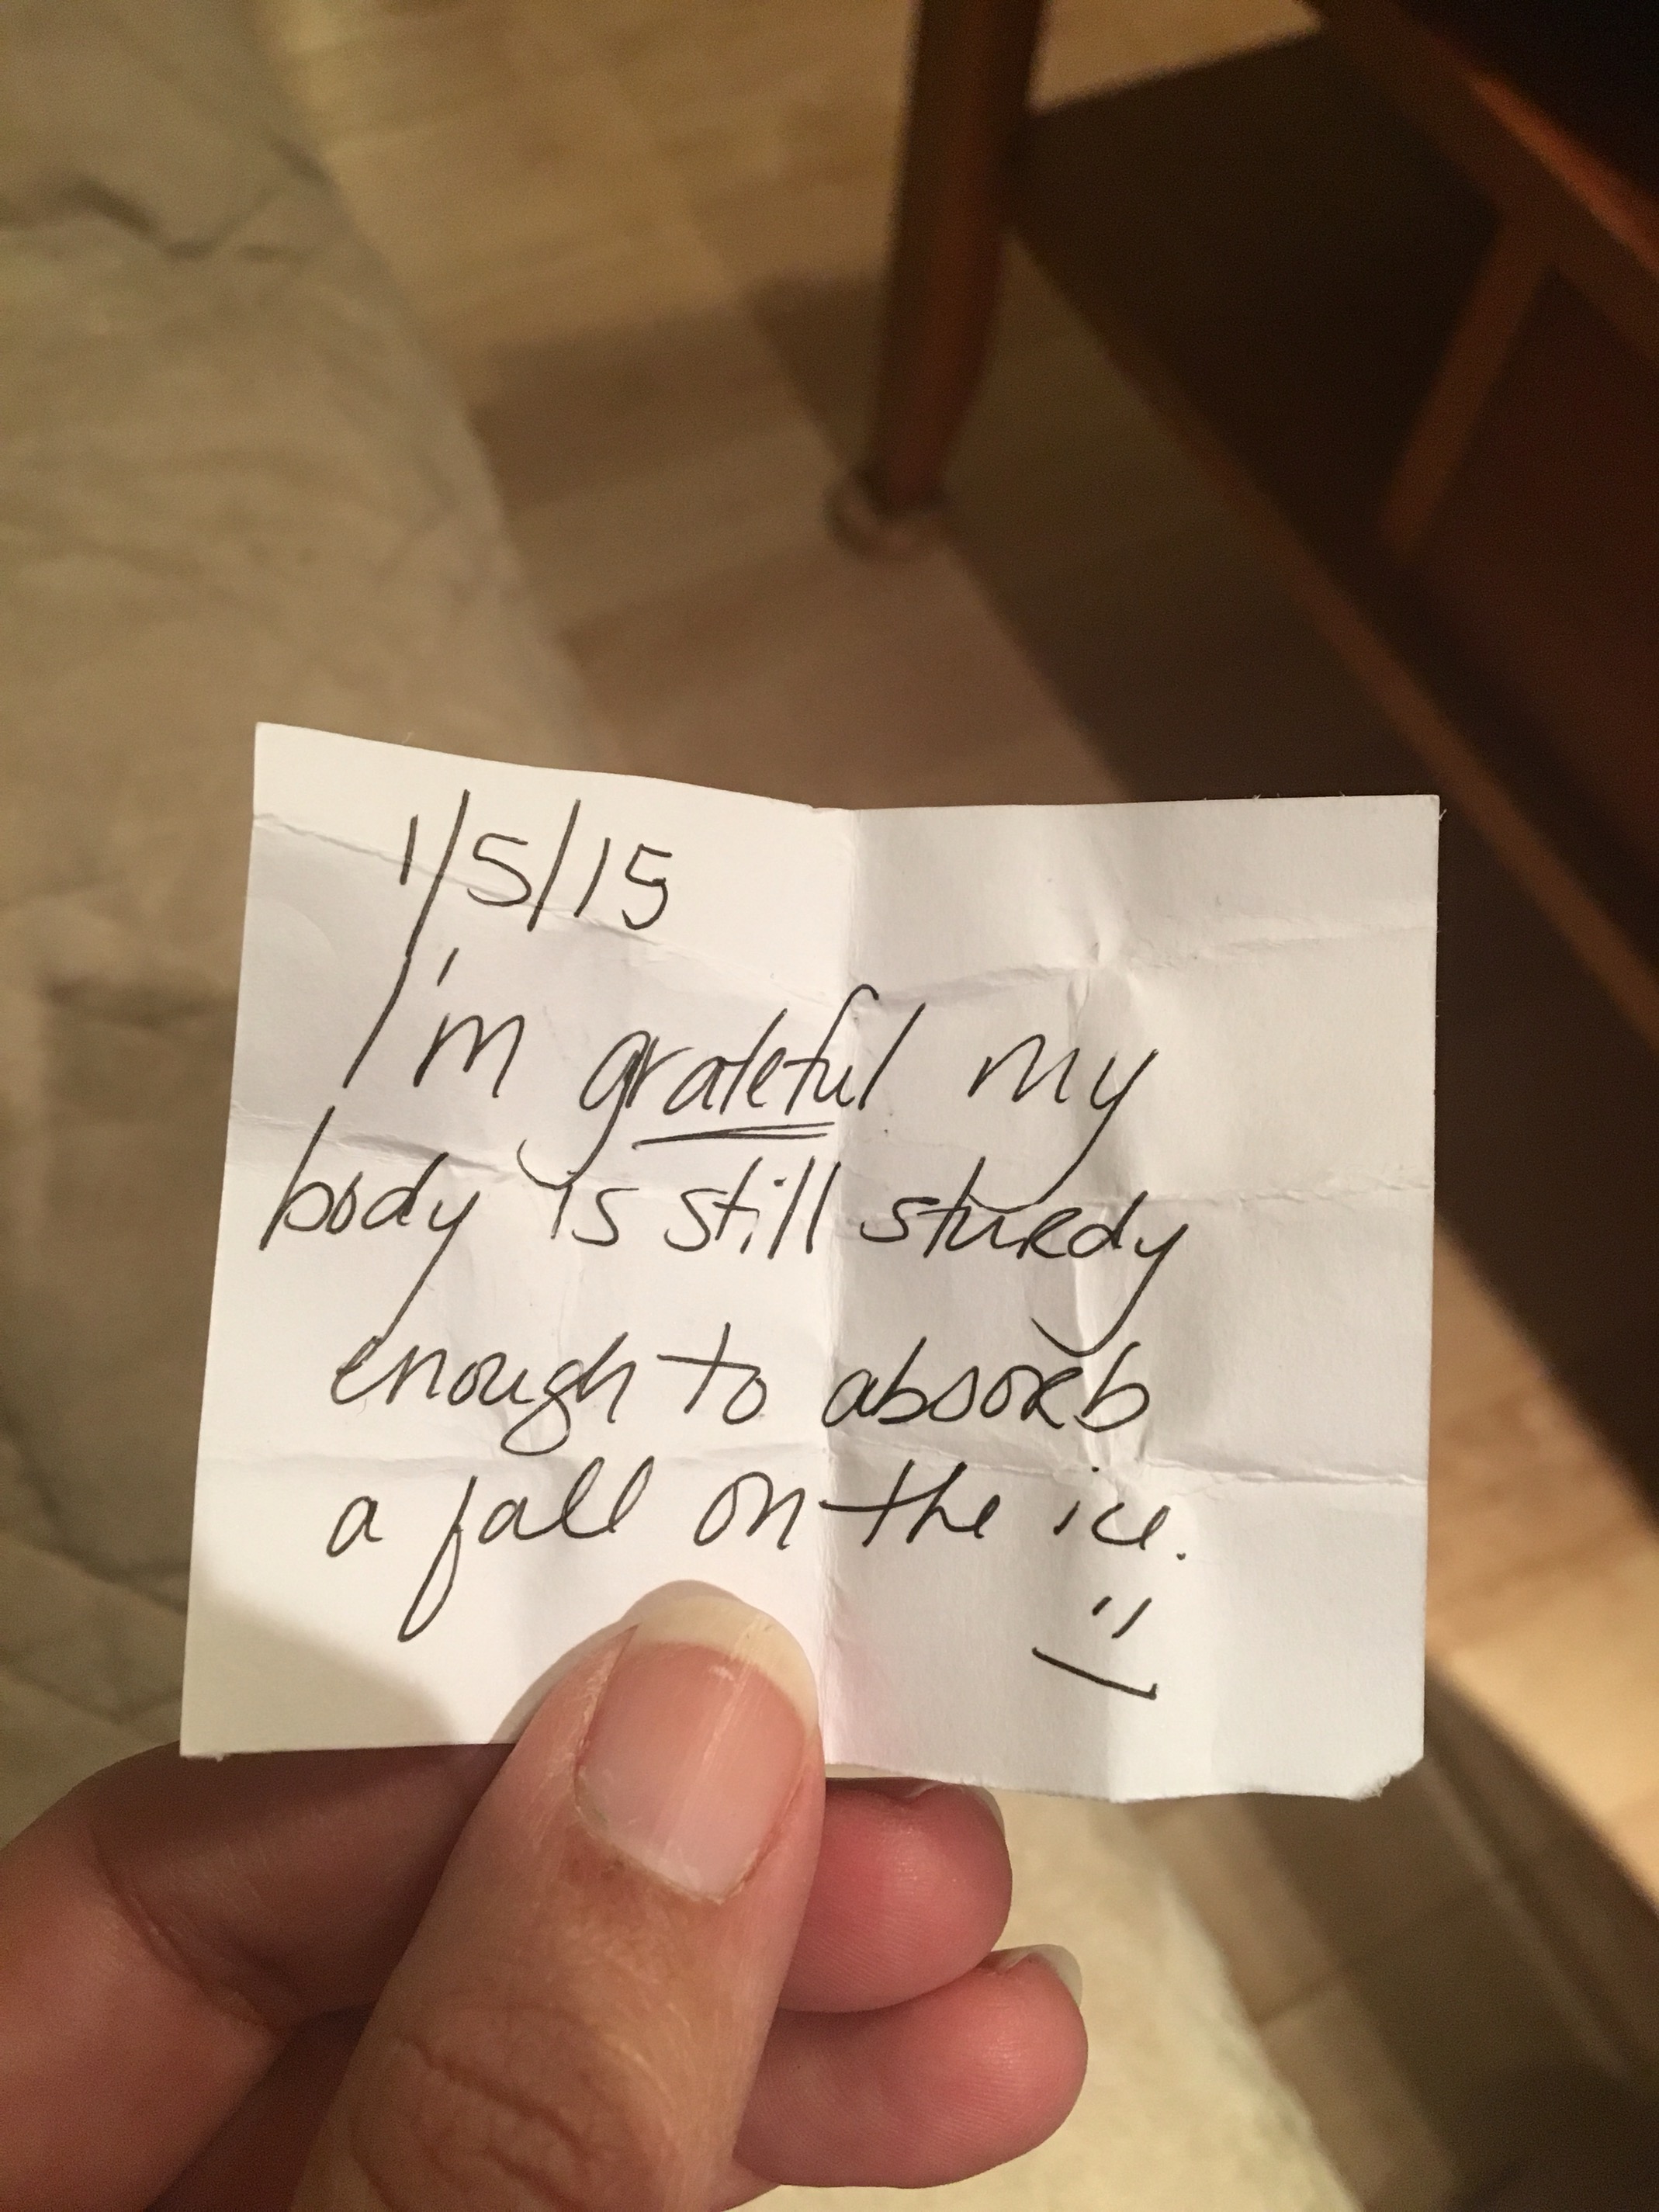 1/5/15
I'm grateful my
body is still sturdy
enough to absorb
a fall on the ice.